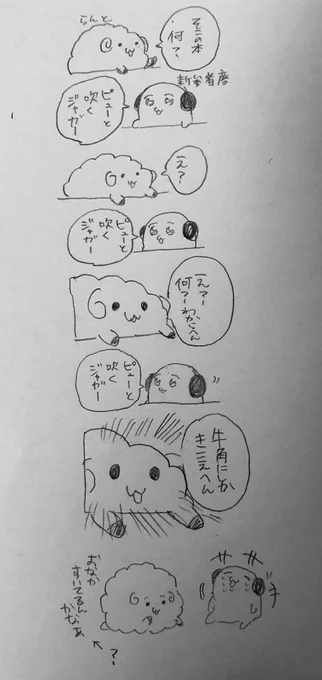 らんと
その本
何?
新谷看磨
ピューと
吹く
ジャガー
え?
ピューと
吹く
ジャガー
えー?
何?わかへん
ピューと
吹く
ジャガー
牛角にしか
きこえへん
ササ
おなか
すいてるん
かなぁ
?